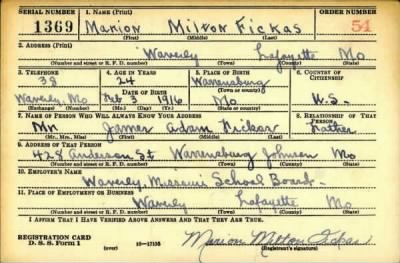 SERIAL NUMBER 1. NAME (Print) ORDER NUMBER
1369 Marion Milton Fickas 54
(First) (Middle) (Last)
2. ADDRESS (Print)
Waverly Lafayette Mo
(Number and street or R. F. D. number) (Town) (County) (State)
3. TELEPHONE 4. AGE IN YEARS 5. PLACE OF BIRTH 6. COUNTRY OF CITIZENSHIP
38 24 Warrensburg
DATE OF BIRTH (Town or county)
Waverly, Mo Feb 3 1916 Mo U.S.
(Exchange) (Number) (Mo.) (Day) (Yr.) (State or country)
7. NAME OF PERSON WHO WILL ALWAYS KNOW YOUR ADDRESS 8. RELATIONSHIP OF THAT PERSON
Mr James Adam Fickas Father
(Mr., Mrs., Miss) (First) (Middle) (Last)
9. ADDRESS OF THAT PERSON
428 Anderson St Warrensburg Johnson Mo
(Number and street or R. F. D. number) (Town) (County) (State)
10. EMPLOYER'S NAME
Waverly, Missouri School Board
11. PLACE OF EMPLOYMENT OR BUSINESS
Waverly Lafayette Mo
(Number and street or R. F. D. number) (Town) (County) (State)
I AFFIRM THAT I HAVE VERIFIED ABOVE ANSWERS AND THAT THEY ARE TRUE.
REGISTRATION CARD
D. S. S. Form 1 (over) 16-17105 Marion Milton Fickas
(Registrant's signature)